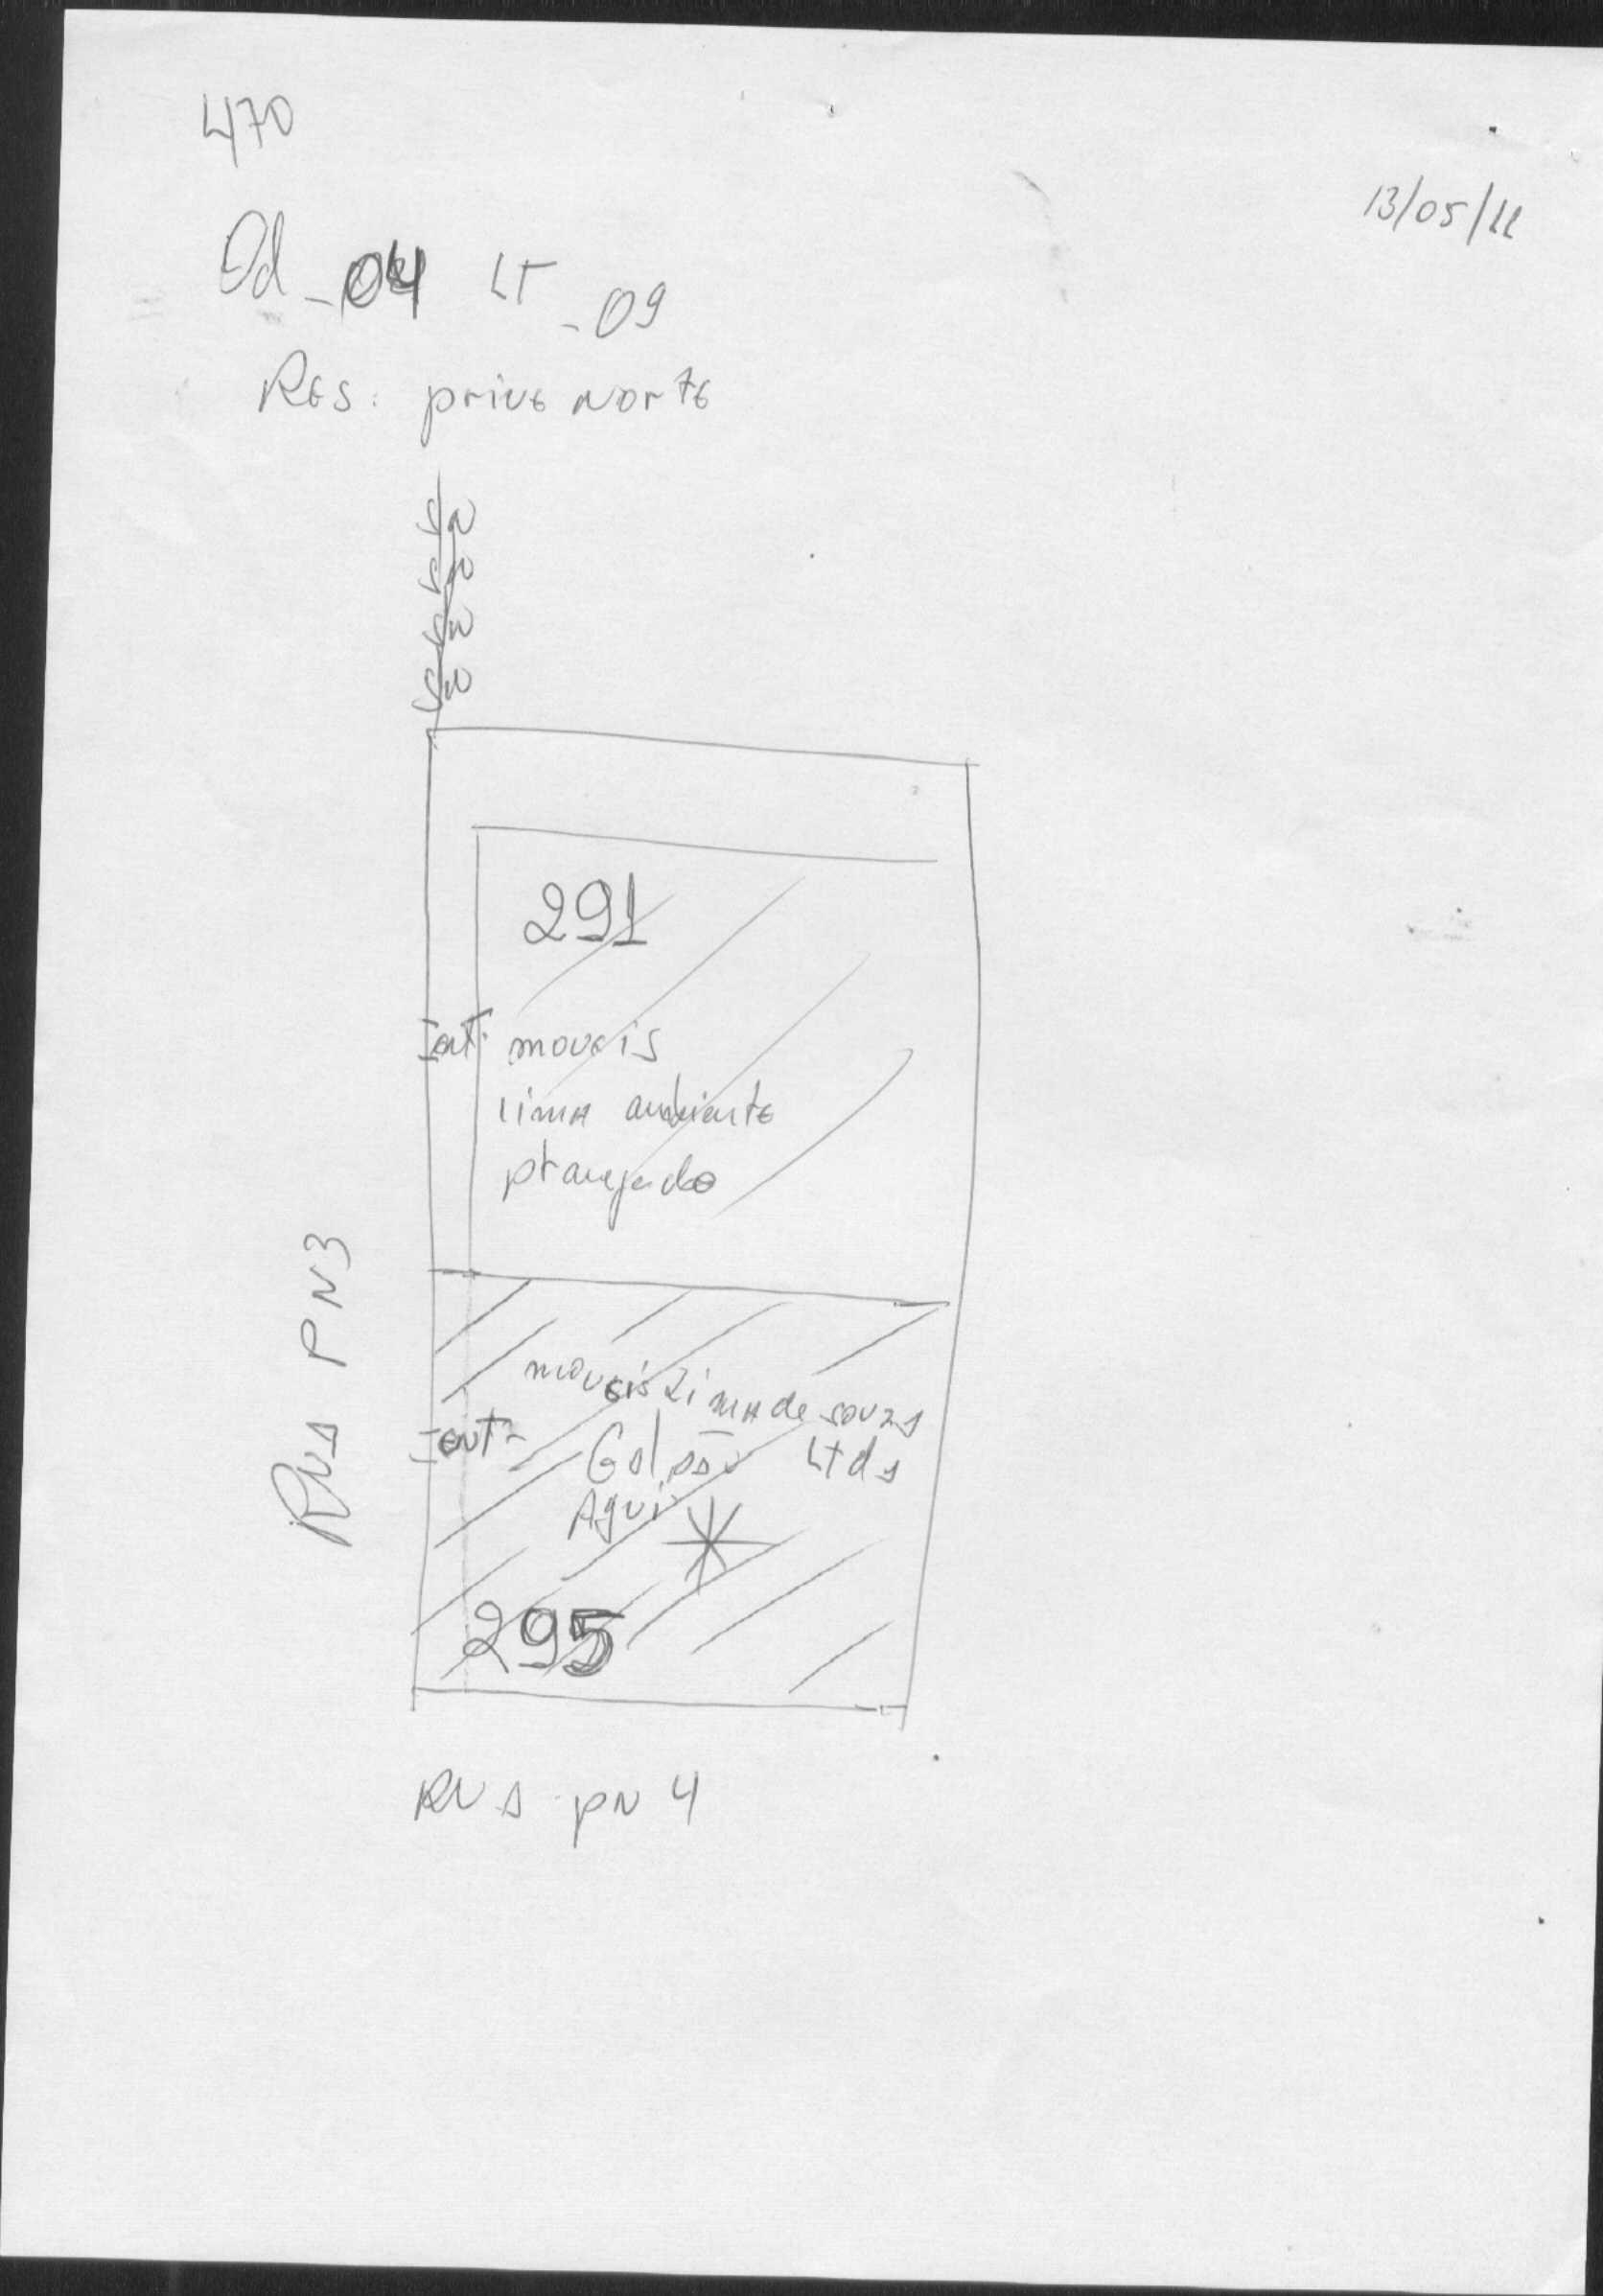 470
13/05/11
Qd - 04 LT - 09
Res: prive norte
S/N
S/N
S/N
S/N
291
Ent. moveis
Lima ambiente
planejado
Rua PN3
moveis Lima de Souza
Ent. Galpão Ltda
Aqui
295
Rua PN 4